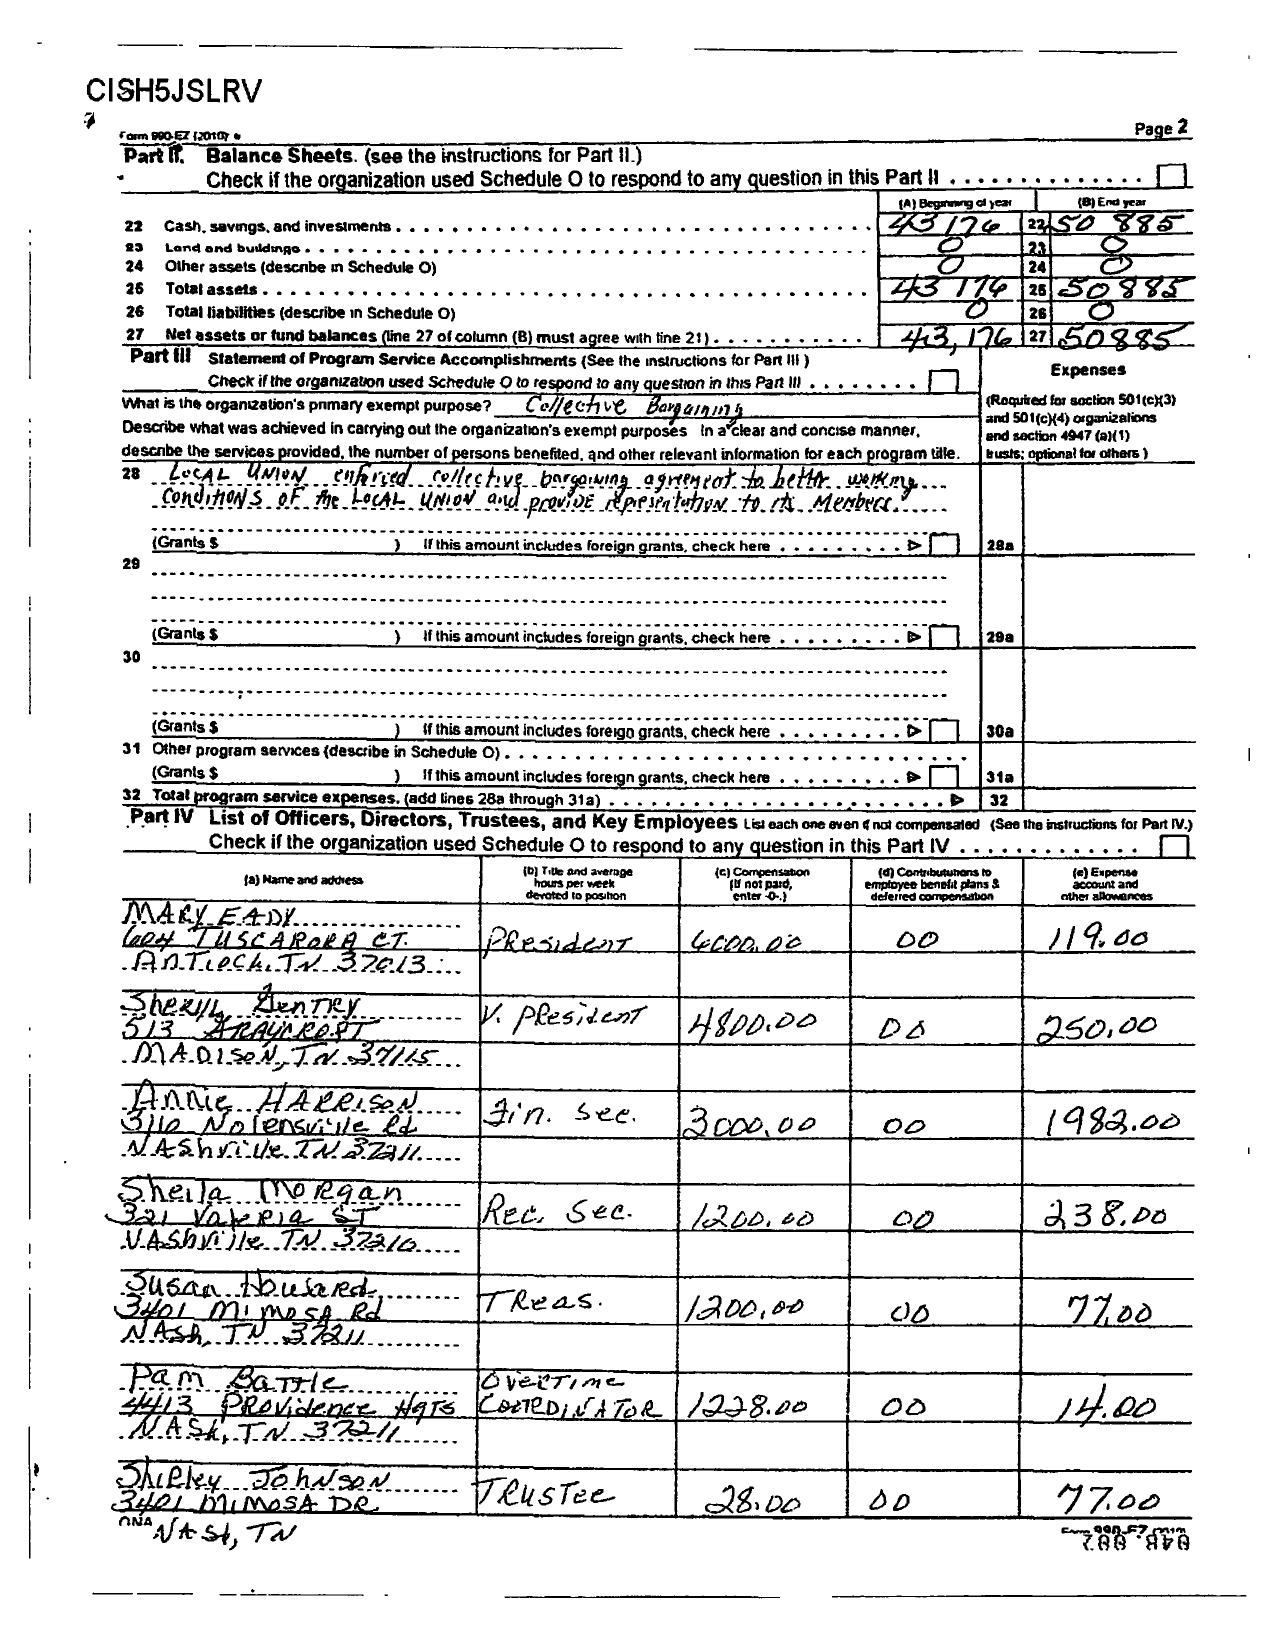 CISH5JSLRV
Form 990-EZ (2010)
Page 2
Part II. Balance Sheets. (see the instructions for Part II.)
Check if the organization used Schedule O to respond to any question in this Part II
(A) Beginning of year (B) End year
22 Cash, savings, and investments 43 176 22 50 885
23 Land and buildings 0 23 0
24 Other assets (describe in Schedule O) 0 24 0
25 Total assets 43 176 25 50885
26 Total liabilities (describe in Schedule O) 0 26 0
27 Net assets or fund balances (line 27 of column (B) must agree with line 21) 43,176 27 50885
Part III Statement of Program Service Accomplishments (See the instructions for Part III )
Check if the organization used Schedule O to respond to any question in this Part III
Expenses
(Required for section 501(c)(3)
and 501(c)(4) organizations
and section 4947 (a)(1)
trusts; optional for others )
What is the organization's primary exempt purpose? Collective Bargaining
Describe what was achieved in carrying out the organization's exempt purposes In a clear and concise manner,
describe the services provided, the number of persons benefited, and other relevant information for each program title.
28 LOCAL UNION enforced collective bargaining agreement to better working
conditions of the LOCAL UNION and provide representation to its Members.
(Grants $ ) If this amount includes foreign grants, check here 28a
29
(Grants $ ) If this amount includes foreign grants, check here 29a
30
(Grants $ ) If this amount includes foreign grants, check here 30a
31 Other program services (describe in Schedule O)
(Grants $ ) If this amount includes foreign grants, check here 31a
32 Total program service expenses. (add lines 28a through 31a) 32
Part IV List of Officers, Directors, Trustees, and Key Employees List each one even if not compensated (See the instructions for Part IV.)
Check if the organization used Schedule O to respond to any question in this Part IV
(a) Name and address
(b) Title and average
hours per week
devoted to position
(c) Compensation
(If not paid,
enter -0-.)
(d) Contributions to
employee benefit plans &
deferred compensation
(e) Expense
account and
other allowances
MARY EADY
604 TUSCARORA CT. President 6000.00 00 119.00
ANTIOCH, TN 37013
Sheryl Gentry
513 V. President 4800.00 00 250.00
MADISON, TN 37115
Annie HARRISON
3110 Nolensville Rd Fin. Sec. 3000.00 00 1982.00
NAShville TN 37211
Sheila Morgan
321 Valeria ST Rec. Sec. 1200.00 00 238.00
NAShville TN 37210
Susan Howard
3401 MIMOSA Rd Treas. 1200.00 00 77.00
NASh, TN 37211
Pam Battle Overtime
4413 Providence Hgts COORDINATOR 1228.00 00 14.00
NASh, TN 37211
Shirley Johnson
3401 MIMOSA DR Trustee 28.00 00 77.00
QNA
NASh, TN